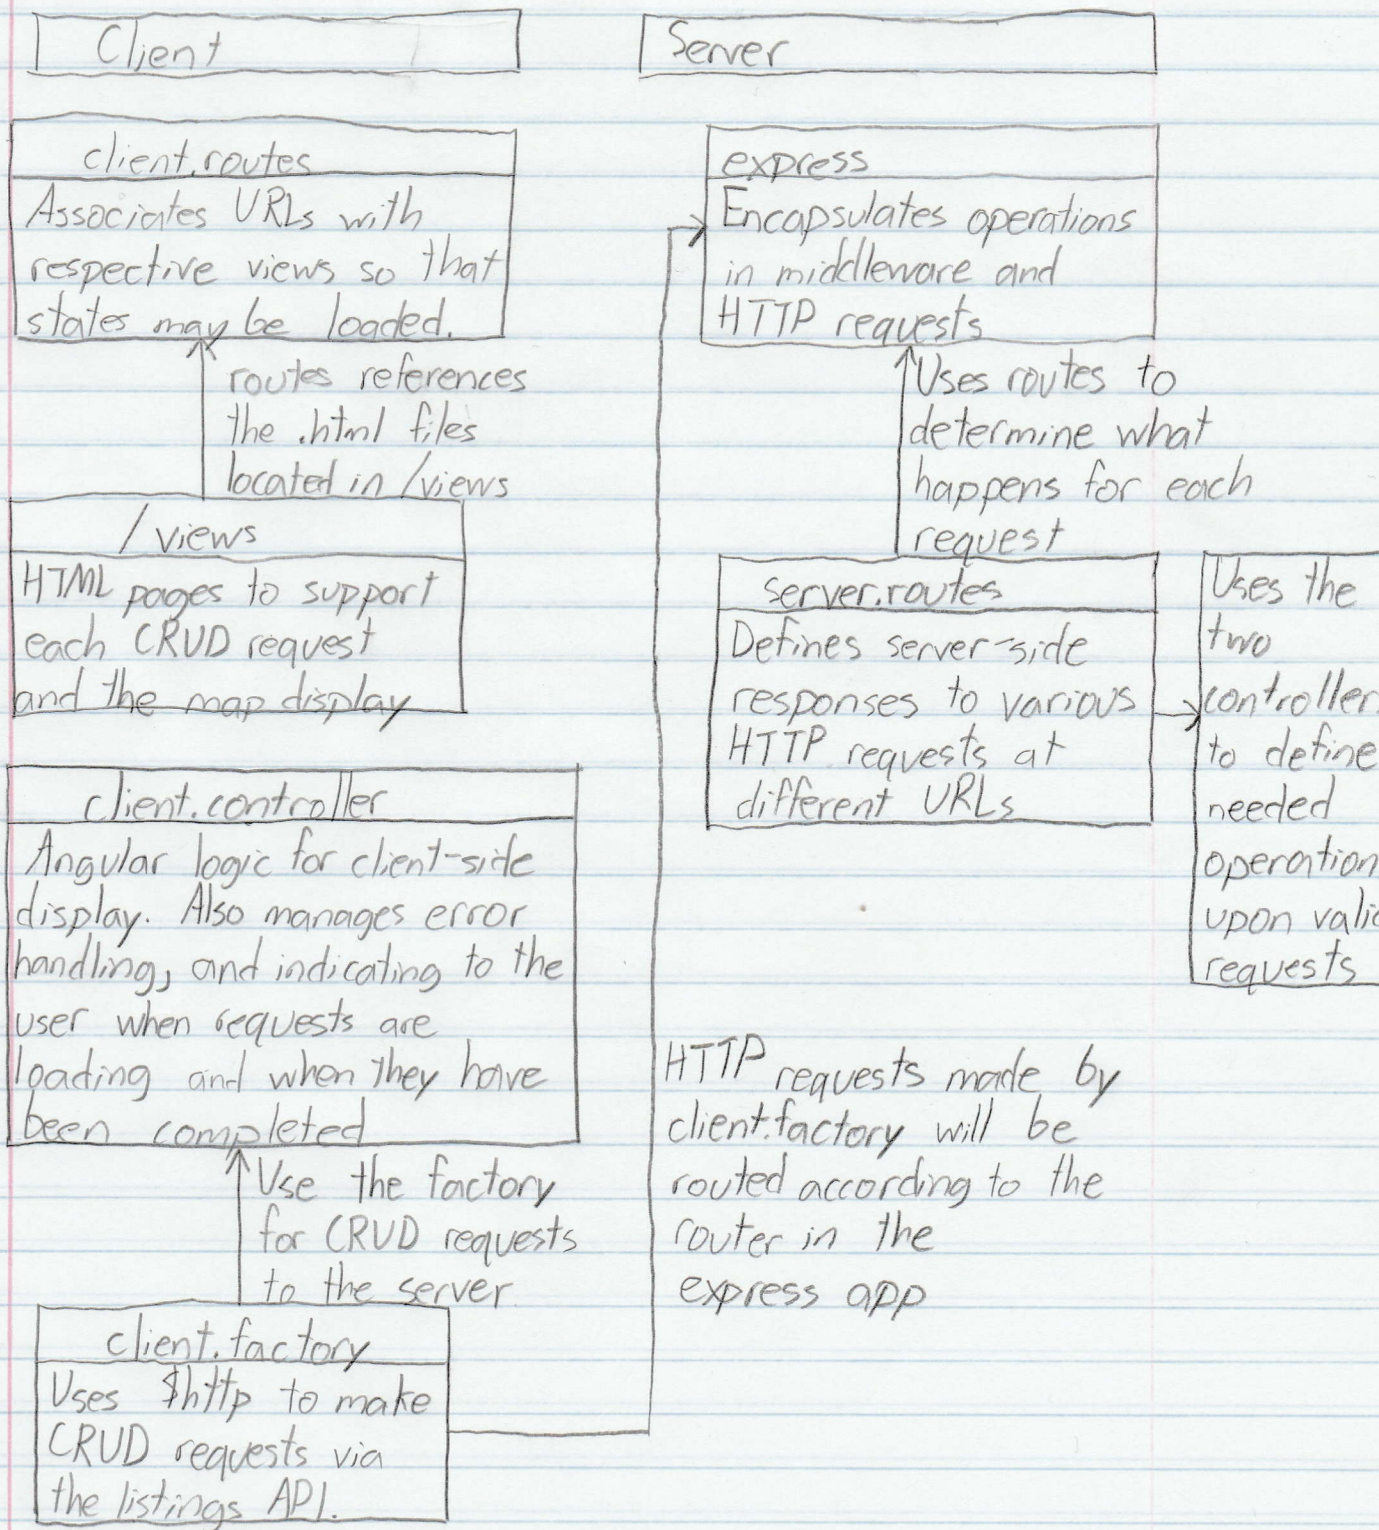 Client
client.routes
Associates URLs with
respective views so that
states may be loaded.
routes references
the .html files
located in /views
/views
HTML pages to support
each CRUD request
and the map display
client.controller
Angular logic for client-side
display. Also manages error
handling, and indicating to the
user when requests are
loading and when they have
been completed
Use the factory
for CRUD requests
to the server
client.factory
Uses $http to make
CRUD requests via
the listings API.
Server
express
Encapsulates operations
in middleware and
HTTP requests
Uses routes to
determine what
happens for each
request
server.routes
Defines server-side
responses to various
HTTP requests at
different URLs
Uses the
two
controllers
to define
needed
operation
upon valid
requests
HTTP requests made by
client.factory will be
routed according to the
router in the
express app